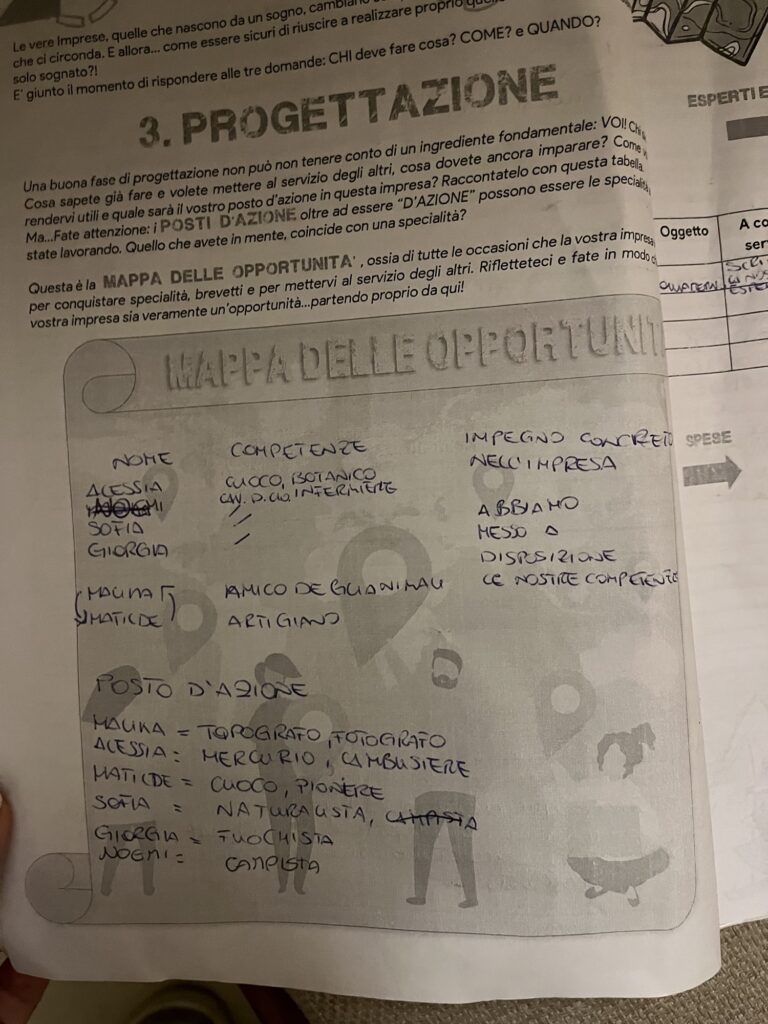 Le vere Imprese, quelle che nascono da un sogno, cambiano
che ci circonda. E allora... come essere sicuri di riuscire a realizzare proprio quello
solo sognato?!
E' giunto il momento di rispondere alle tre domande: CHI deve fare cosa? COME? e QUANDO?
3. PROGETTAZIONE
Una buona fase di progettazione non può non tenere conto di un ingrediente fondamentale: VOI! Chi
Cosa sapete già fare e volete mettere al servizio degli altri, cosa dovete ancora imparare? Come
rendervi utili e quale sarà il vostro posto d'azione in questa impresa? Raccontatelo con questa tabella.
Ma...Fate attenzione: i POSTI D'AZIONE oltre ad essere "D'AZIONE" possono essere le specialità
state lavorando. Quello che avete in mente, coincide con una specialità?
Questa è la MAPPA DELLE OPPORTUNITA', ossia di tutte le occasioni che la vostra impresa
per conquistare specialità, brevetti e per mettervi al servizio degli altri. Rifletteteci e fate in modo
vostra impresa sia veramente un'opportunità...partendo proprio da qui!
MAPPA DELLE OPPORTUNIT
NOME COMPETENZE IMPEGNO CONCRETO
NELL'IMPRESA
ALESSIA CUOCO, BOTANICO
INFERMIERE
SOFIA //
GIORGIA //
ABBIAMO
MESSO A
DISPOSIZIONE
LE NOSTRE COMPETENZE
MALIKA AMICO DEGLI ANIMALI
MATILDE ARTIGIANO
POSTO D'AZIONE
MALIKA = TOPOGRAFO, FOTOGRAFO
ALESSIA = MERCURIO, CAMBUSIERE
MATILDE = CUOCO, PIONERE
SOFIA = NATURALISTA, CAMPISTA
GIORGIA = FUOCHISTA
NOEMI = CAMPISTA
ESPERTI E
Oggetto A co
ser
QUADERNI
SPESE